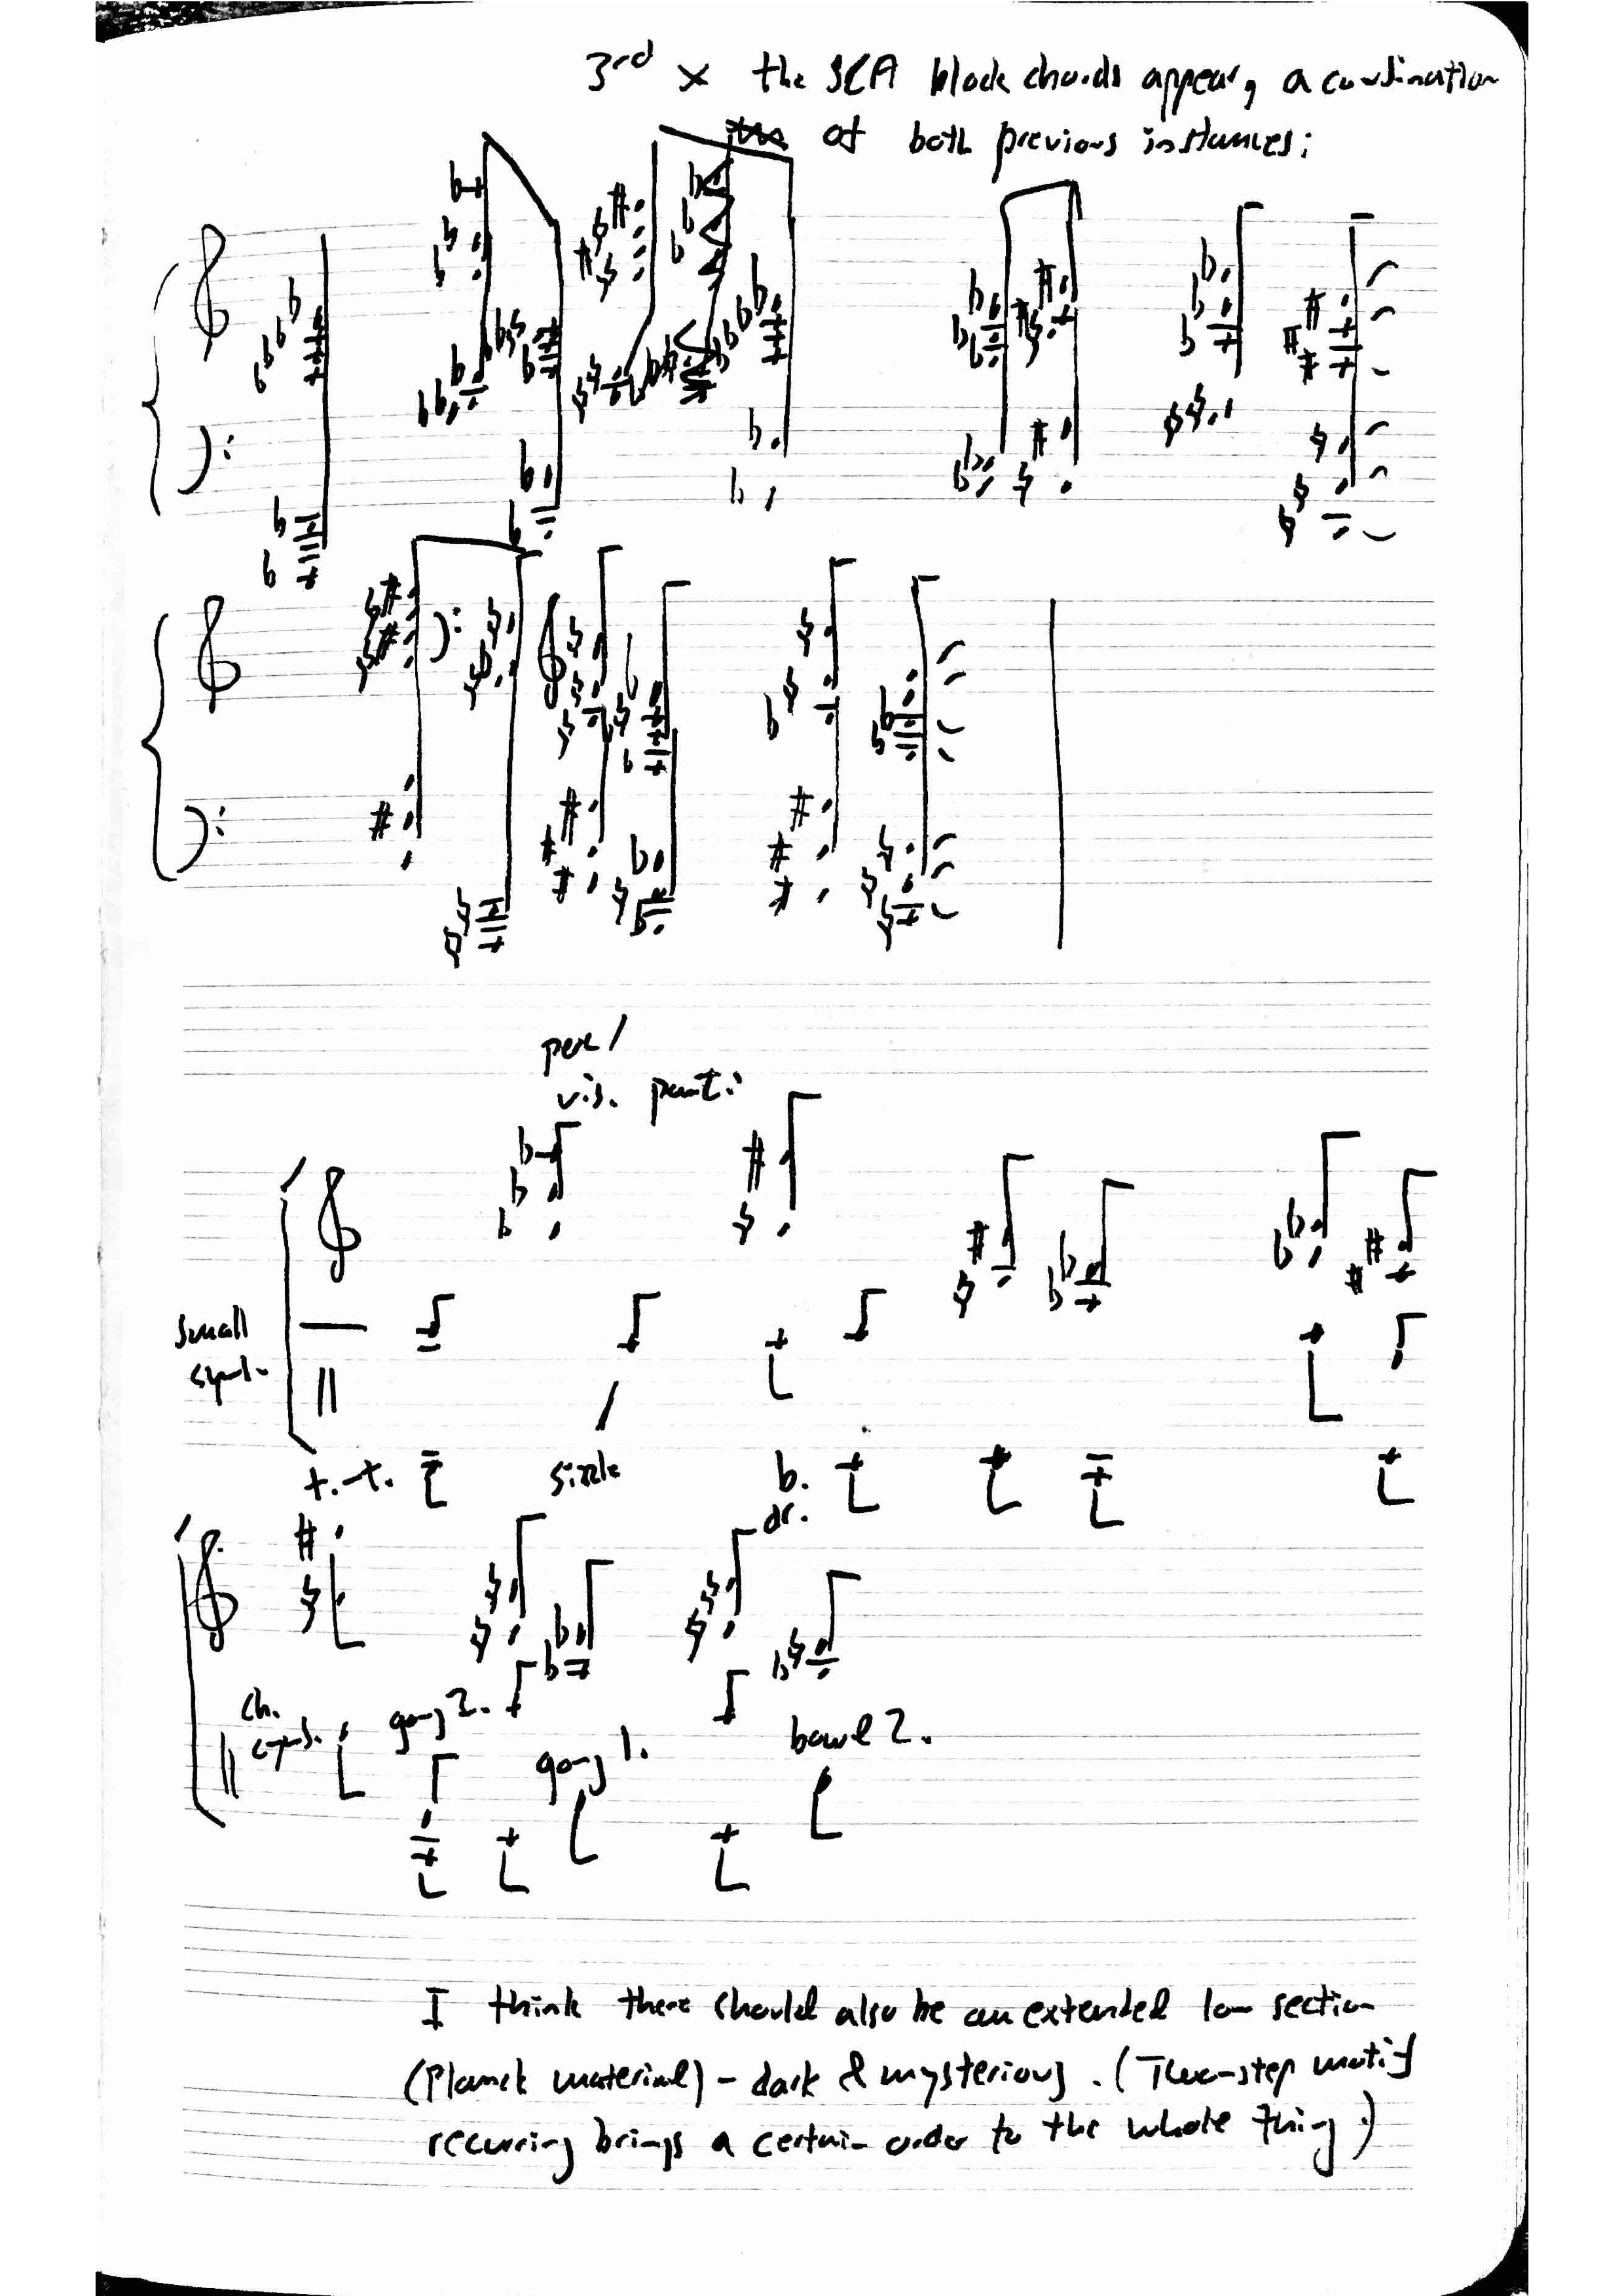 3rd x the SCA block chords appear, a combination
of both previous instances:
perc /
vis. part:
small
cymb.
t.-t.
sizzle
b.
dr.
ch.
cymb.
gong 2.
gong 1.
bowl 2.
I think there should also be an extended low section
(Planck material) - dark & mysterious. (Two-step motif
recurring brings a certain order to the whole thing.)